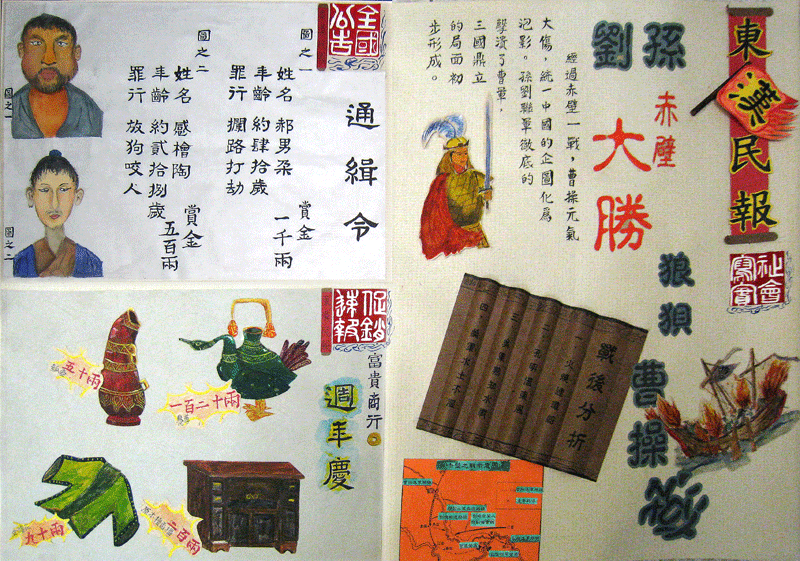 東漢民報
孫劉
赤壁
大勝
狼狽曹操
社會寫實
經過赤壁一戰，曹操元氣
大傷，統一中國的企圖化為
泡影。孫劉聯軍徹底的
擊潰了曹軍，
三國鼎立
的局面初
步形成。
戰後分析
赤壁之戰示意圖
全國公告
通緝令
圖之一
姓名 郝男朵
年齡 約肆拾歲
罪行 攔路打劫
賞金 一千兩
圖之二
姓名 感檜陶
年齡 約貳拾捌歲
罪行 放狗咬人
賞金 五百兩
圖之一
圖之二
促銷速報
富貴商行
週年慶
五十兩
一百二十兩
九十兩